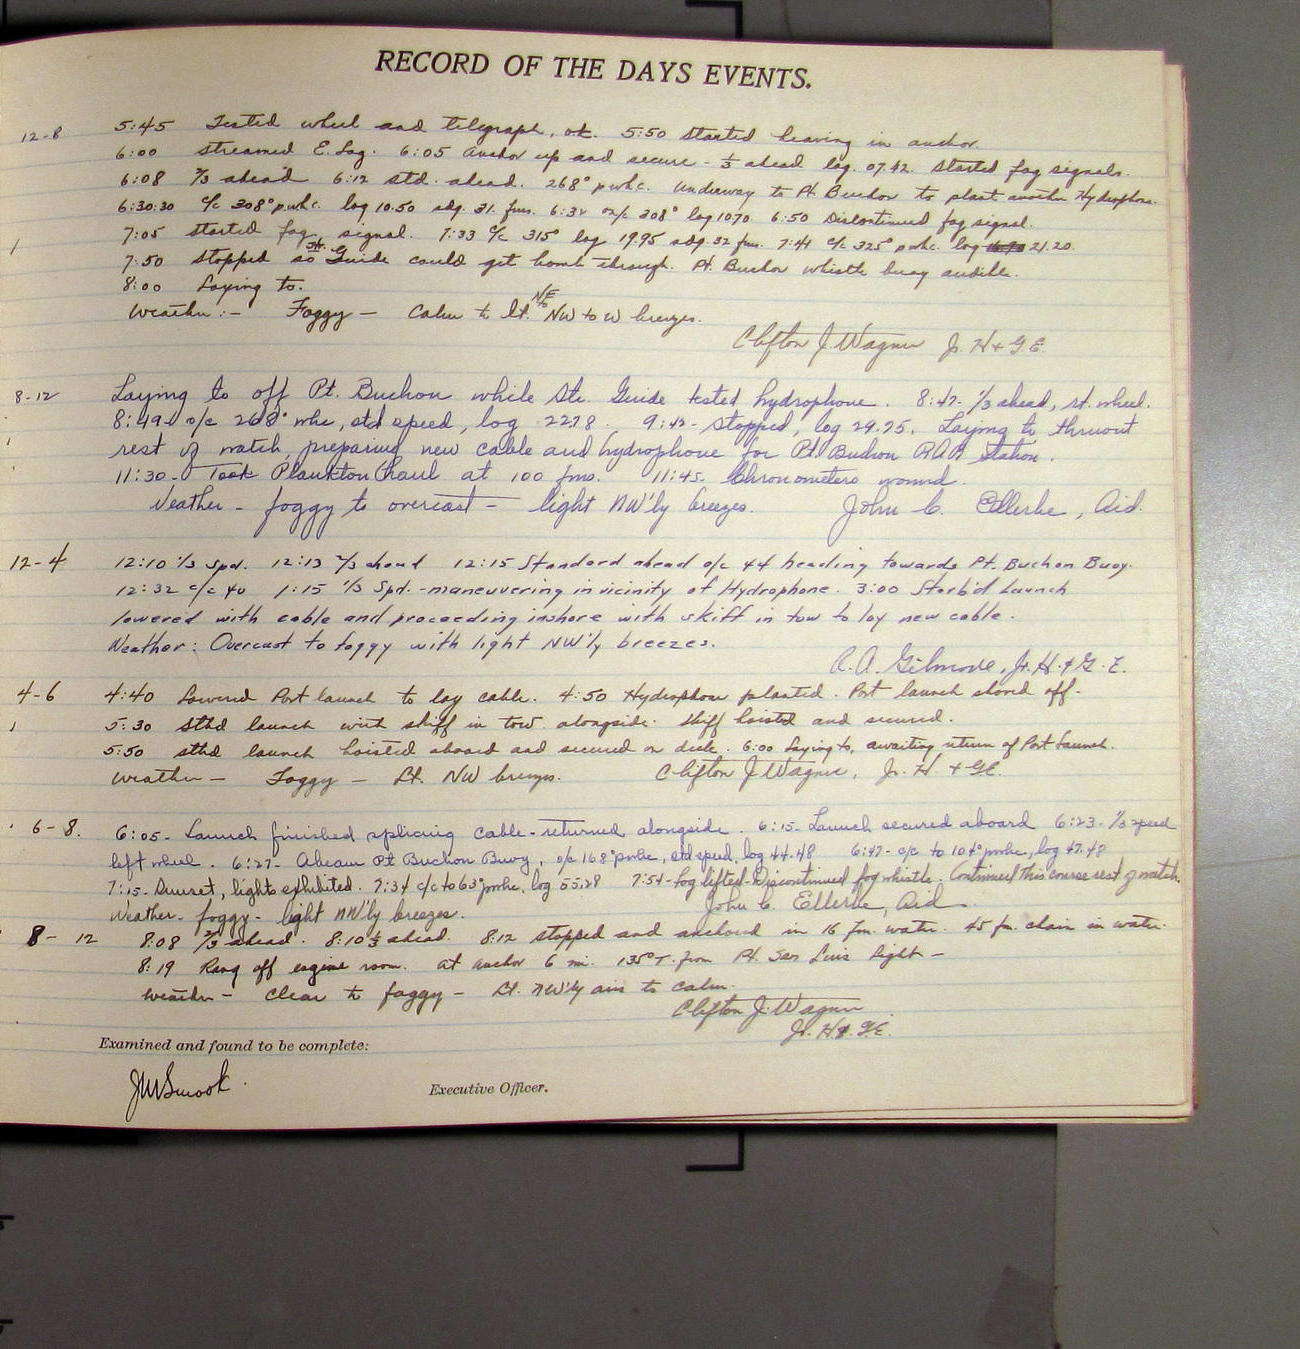 RECORD OF THE DAYS EVENTS.
12-8 5:45 Tested wheel and telegraph, ok. 5:50 started heaving in anchor.
6:00 streamed E. Log. 6:05 anchor up and secure - 1/3 ahead log 07.42. Started fog signals.
6:08 2/3 ahead 6:12 std. ahead. 268° pwhc. Underway to Pt. Buchon to plant another Hydrophone.
6:30:30 c/c 308° pwhc. log 10.50 sdg. 31 fms. 6:32 on/c 308° log 10.70. 6:50 Discontinued fog signal.
7:05 started fog signal. 7:33 c/c 315° log 19.95 sdg. 32 fm. 7:41 c/c 325° pwhc. log 21.20.
7:50 stopped so Str. Guide could get bomb through. Pt. Buchon whistle buoy audible.
8:00 Laying to.
Weather:- Foggy - Calm to lt. NE to NW to W breezes.
Clifton J. Wagner Jr. H & G E.
8-12 Laying to off Pt. Buchon while Str. Guide tested hydrophone. 8:47- 1/3 ahead, rt. wheel.
8:49- o/c 268° whc, std speed, log 22.78. 9:42- stopped, log 29.75. Laying to thruout
rest of watch, preparing new cable and hydrophone for Pt. Buchon RAR Station.
11:30- Took Plankton haul at 100 fms. 11:45. Chronometers wound.
Weather - foggy to overcast - light NW'ly breezes. John C. Ellerbe, Aid.
12-4 12:10 1/3 spd. 12:13 2/3 ahead 12:15 Standard ahead o/c 44 heading towards Pt. Buchon Buoy.
12:32 c/c 40 1:15 1/3 Spd. - maneuvering in vicinity of Hydrophone. 3:00 Starb'd Launch
lowered with cable and proceeding inshore with skiff in tow to lay new cable.
Weather: Overcast to foggy with light NW'ly breezes.
R. A. Gilmore, Jr. H. & G. E.
4-6 4:40 Lowered Port launch to lay cable. 4:50 Hydrophone planted. Port launch shoved off.
5:30 stbd launch with skiff in tow alongside. Skiff hoisted and secured.
5:50 stbd launch hoisted aboard and secured on deck. 6:00 Laying to, awaiting return of Port Launch.
Weather - Foggy - Lt. NW breezes. Clifton J. Wagner, Jr. H. & GE.
6-8. 6:05- Launch finished splicing cable - returned alongside. 6:15- Launch secured aboard 6:23- 1/3 speed
left wheel. 6:27- Abeam Pt Buchon Buoy, o/c 168° pwhc, std speed, log 44.48 6:47- c/c to 104° pwhc, log 47.48
7:15- Sunset, lights exhibited. 7:34 c/c to 63° pwhc, log 55.28 7:54- Fog lifted - Discontinued fog whistle. Continued this course rest of watch.
Weather - foggy - light NW'ly breezes. John C. Ellerbe, Aid.
8-12 8:08 2/3 ahead. 8:10 1/3 ahead. 8:12 stopped and anchored in 16 fm. water. 45 fm. chain in water.
8:19 Rang off engine room. at anchor 6 mi. 135° T. from Pt. San Luis light -
Weather - clear to foggy - Lt. NW'ly airs to calm.
Clifton J. Wagner
Jr. H & G.E.
Examined and found to be complete:
JM Smook
Executive Officer.